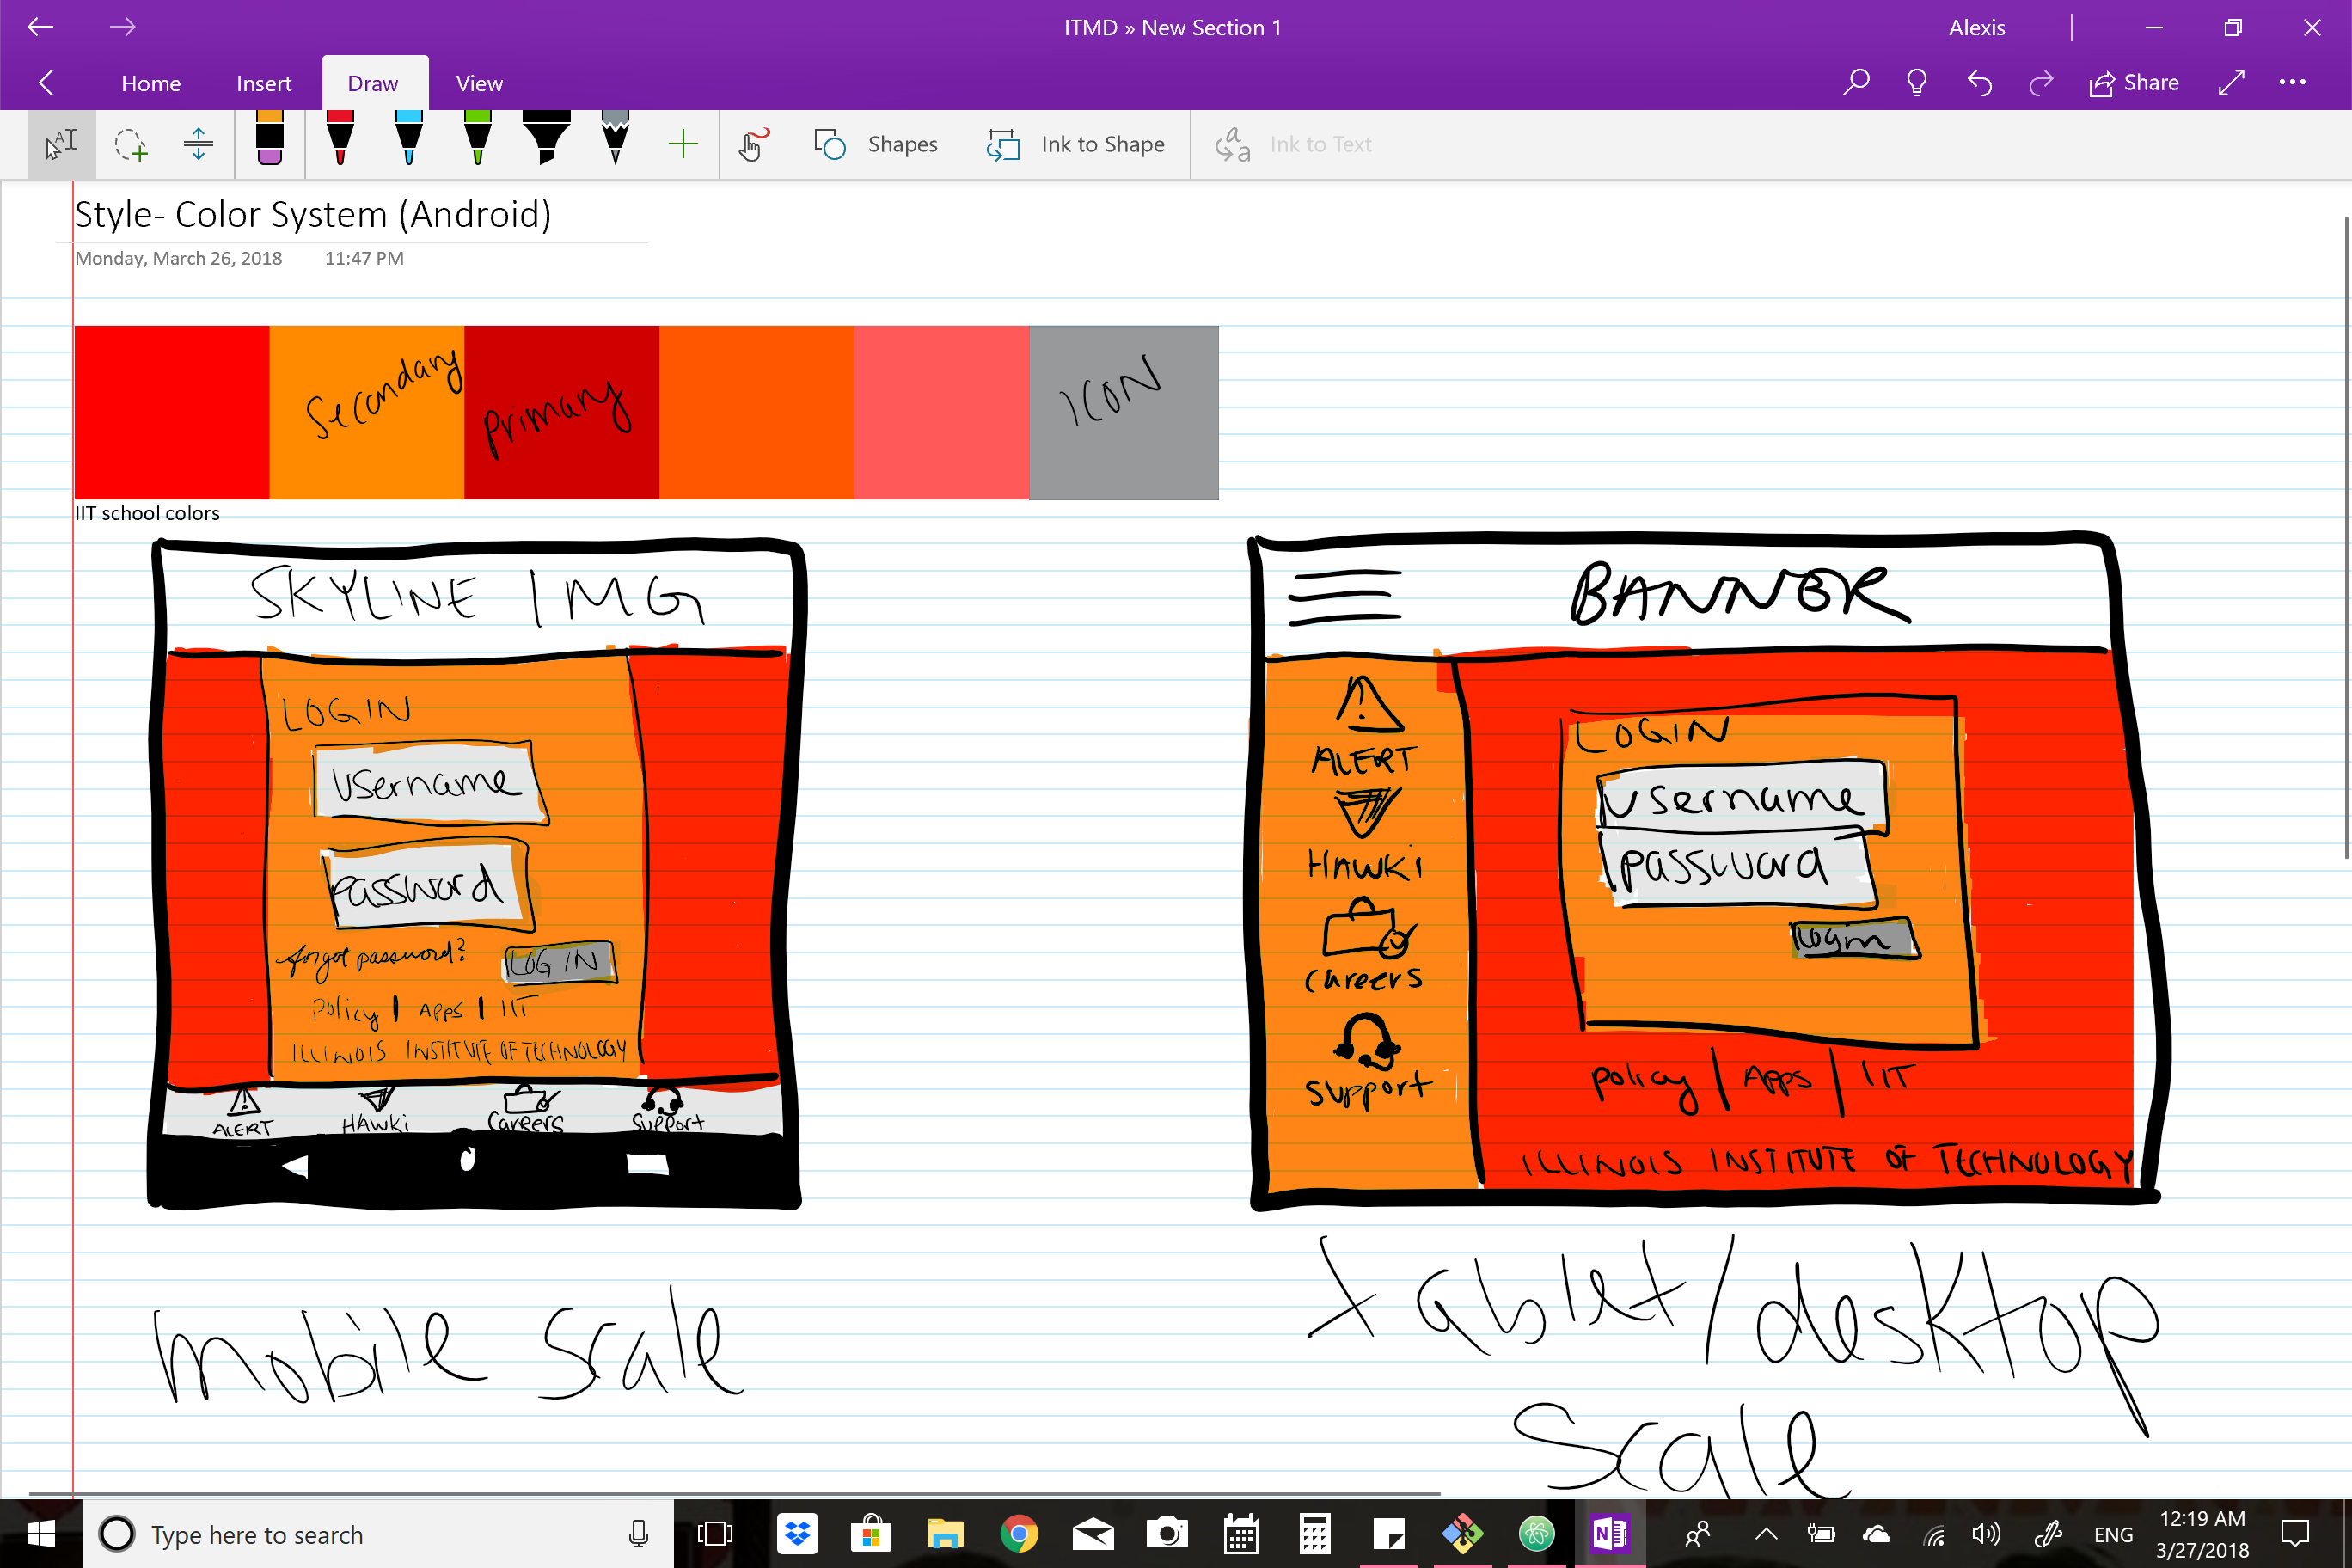 ITMD » New Section 1
Alexis
Home Insert Draw View
Share
Shapes Ink to Shape Ink to Text
Style- Color System (Android)
Monday, March 26, 2018 11:47 PM
Secondary
primary
ICON
IIT school colors
SKYLINE IMG
LOGIN
username
password
forgot password?
LOGIN
policy | Apps | IIT
ILLINOIS INSTITUTE OF TECHNOLOGY
ALERT HAWKi Careers Support
mobile scale
BANNER
ALERT
HAWKi
careers
support
LOGIN
username
password
login
policy / Apps / IIT
ILLINOIS INSTITUTE OF TECHNOLOGY
tablet/desktop
scale
Type here to search
ENG
12:19 AM
3/27/2018